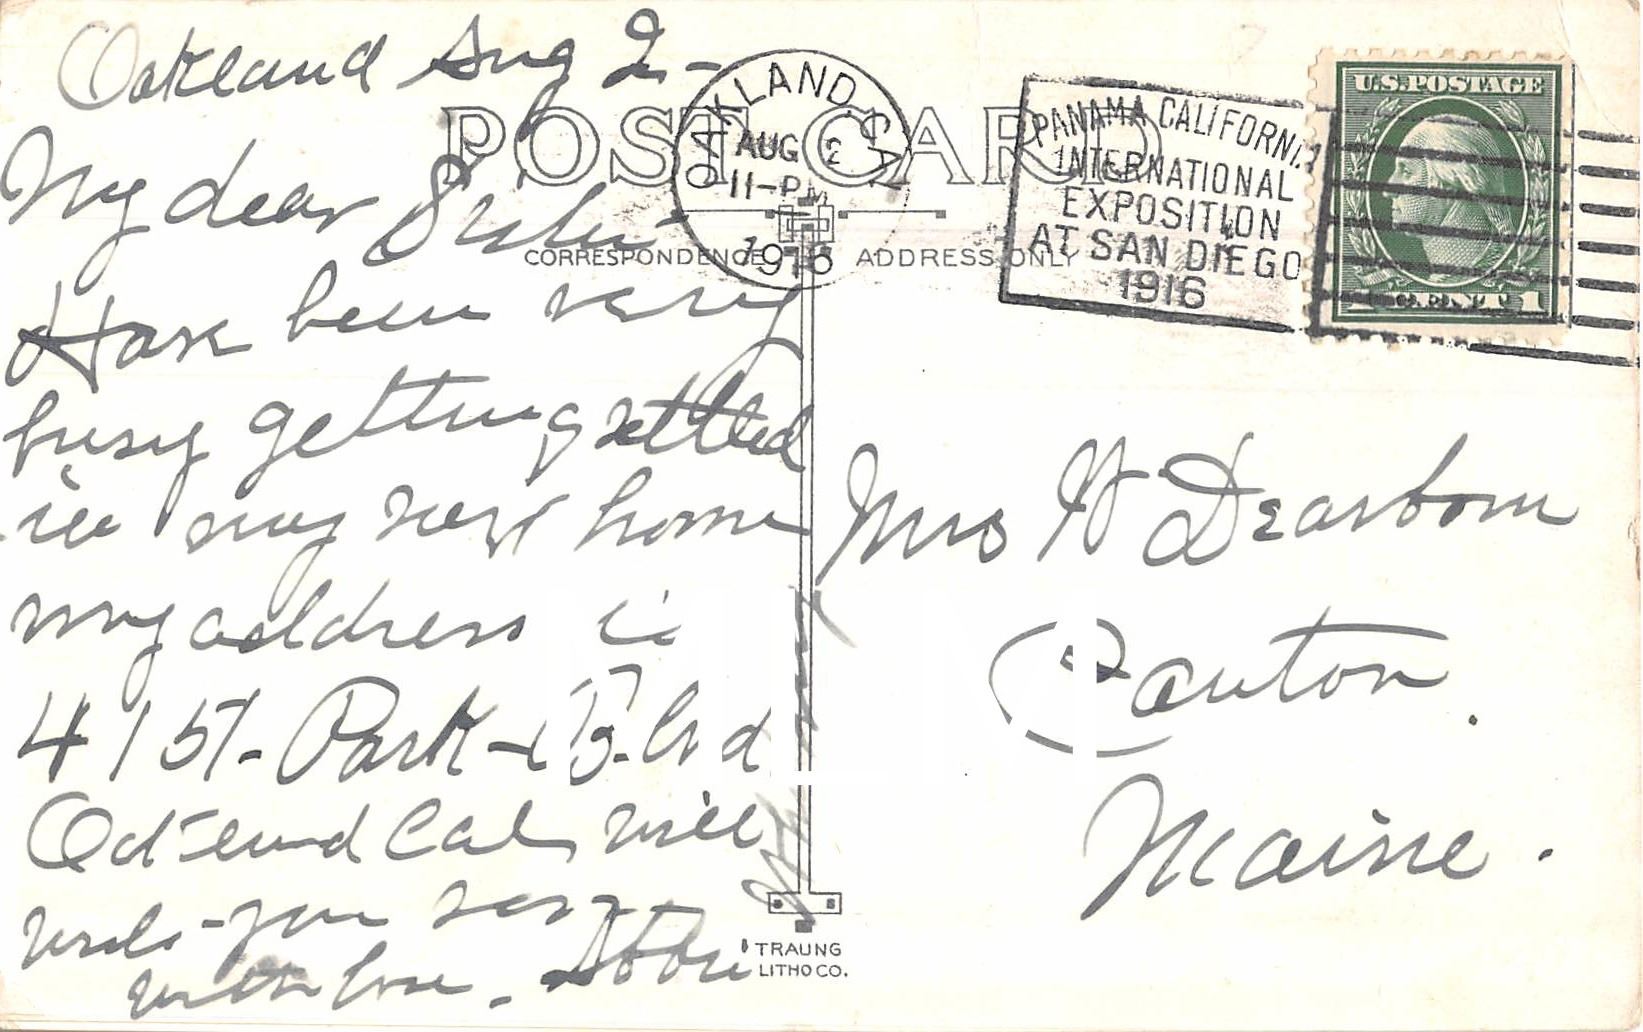 Oakland Aug 2-
POST CARD
OAKLAND, CAL.
AUG 2
11-PM
1916
PANAMA CALIFORNIA
INTERNATIONAL
EXPOSITION
AT SAN DIEGO
1916
U.S. POSTAGE
1 CENT 1
My dear Sister
CORRESPONDENCE
ADDRESS ONLY
Have been very
busy getting settled
in my new home
my address is
4157- Park - Blvd
Oakland Cal will
write you soon
with love. Abbie
Mrs H Dearborn
Canton.
Maine.
TRAUNG
LITHO CO.